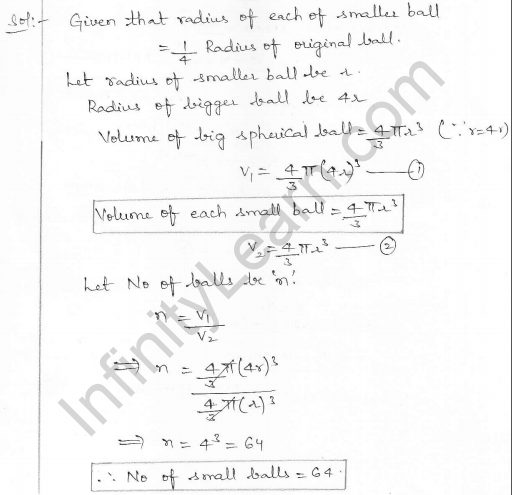 Sol:- Given that radius of each of smaller ball
= 1/4 Radius of original ball.
Let radius of smaller ball be r.
Radius of bigger ball be 4r
Volume of big spherical ball = 4/3 πr³ (∵ r=4r)
V₁ = 4/3 π(4r)³ —— ①
Volume of each small ball = 4/3 πr³
V₂ = 4/3 πr³ —— ②
Let No of balls be 'n'.
n = V₁/V₂
⟹ n = (4/3 π(4r)³)/(4/3 π(r)³)
⟹ n = 4³ = 64
∴ No of small balls = 64.
InfinityLearn.com